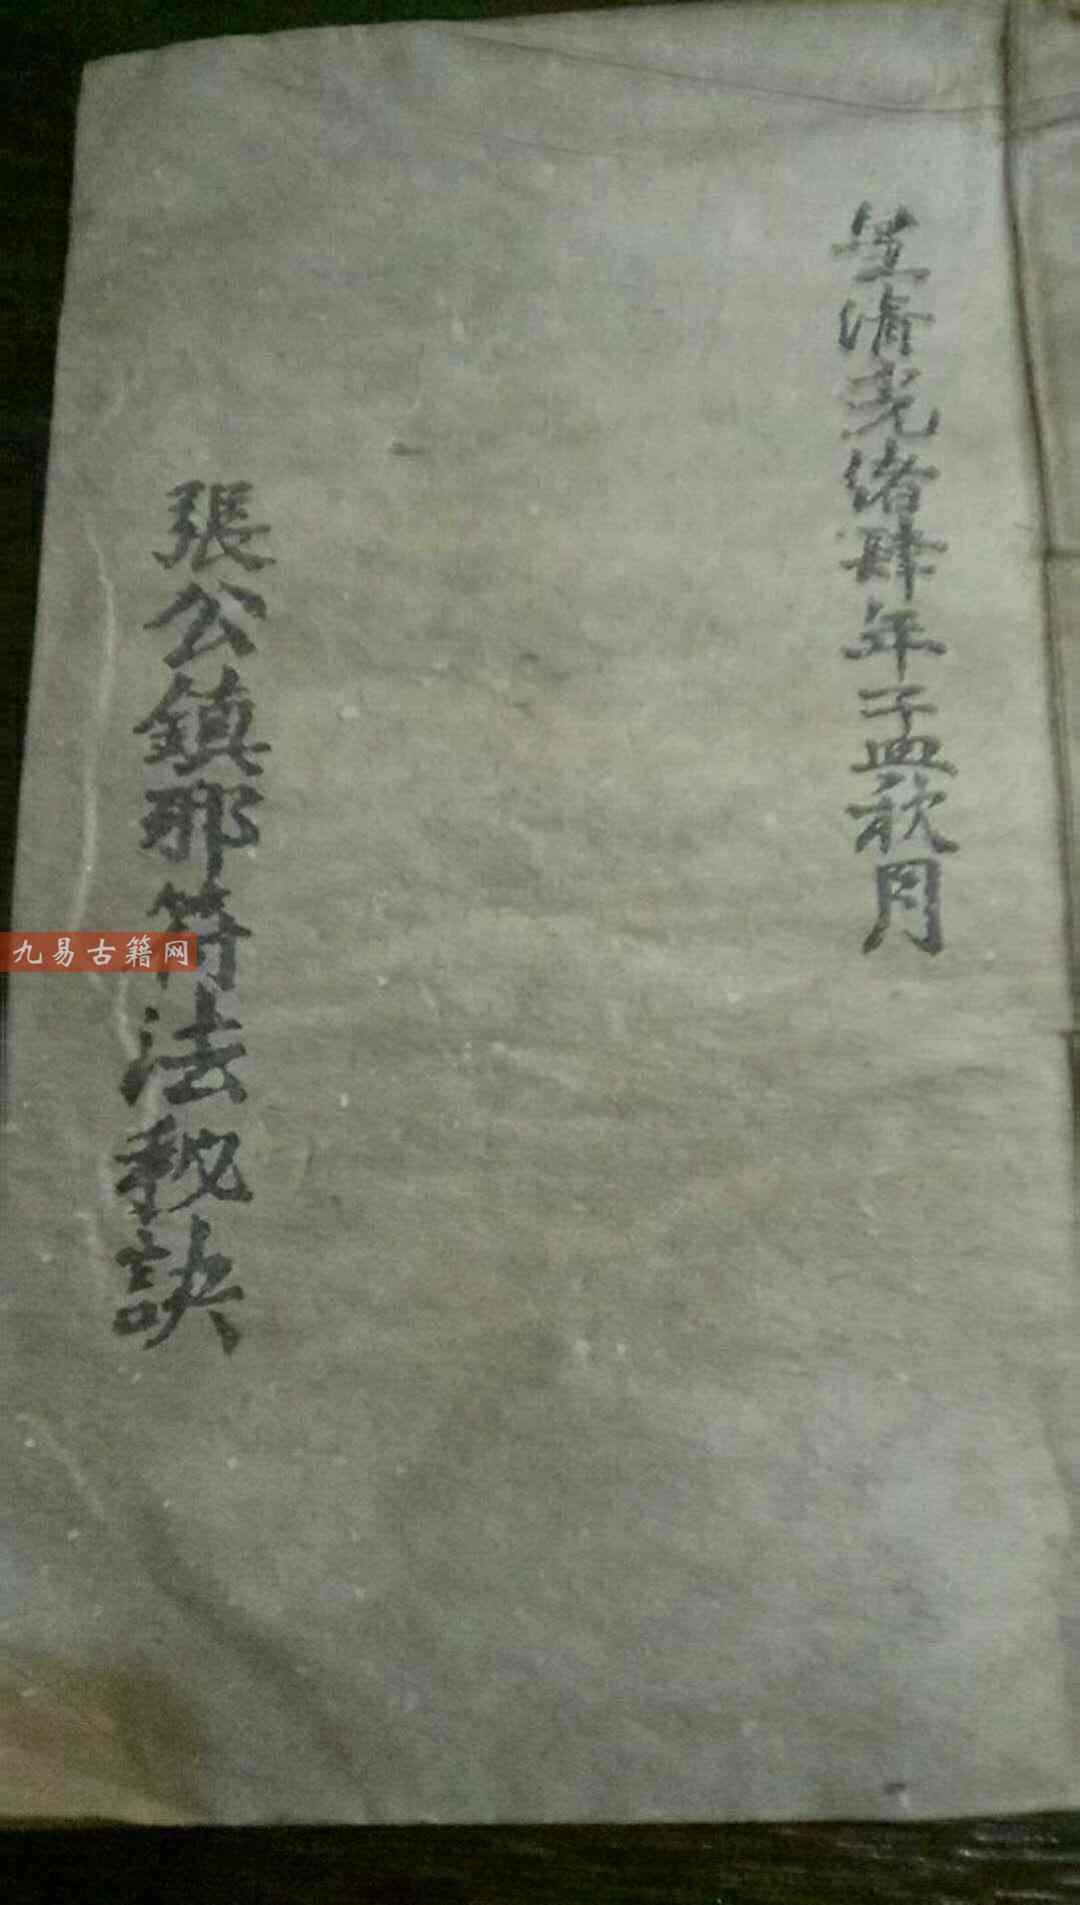 清光緒肆年孟秋月
張公鎮邪符法秘訣
九易古籍网